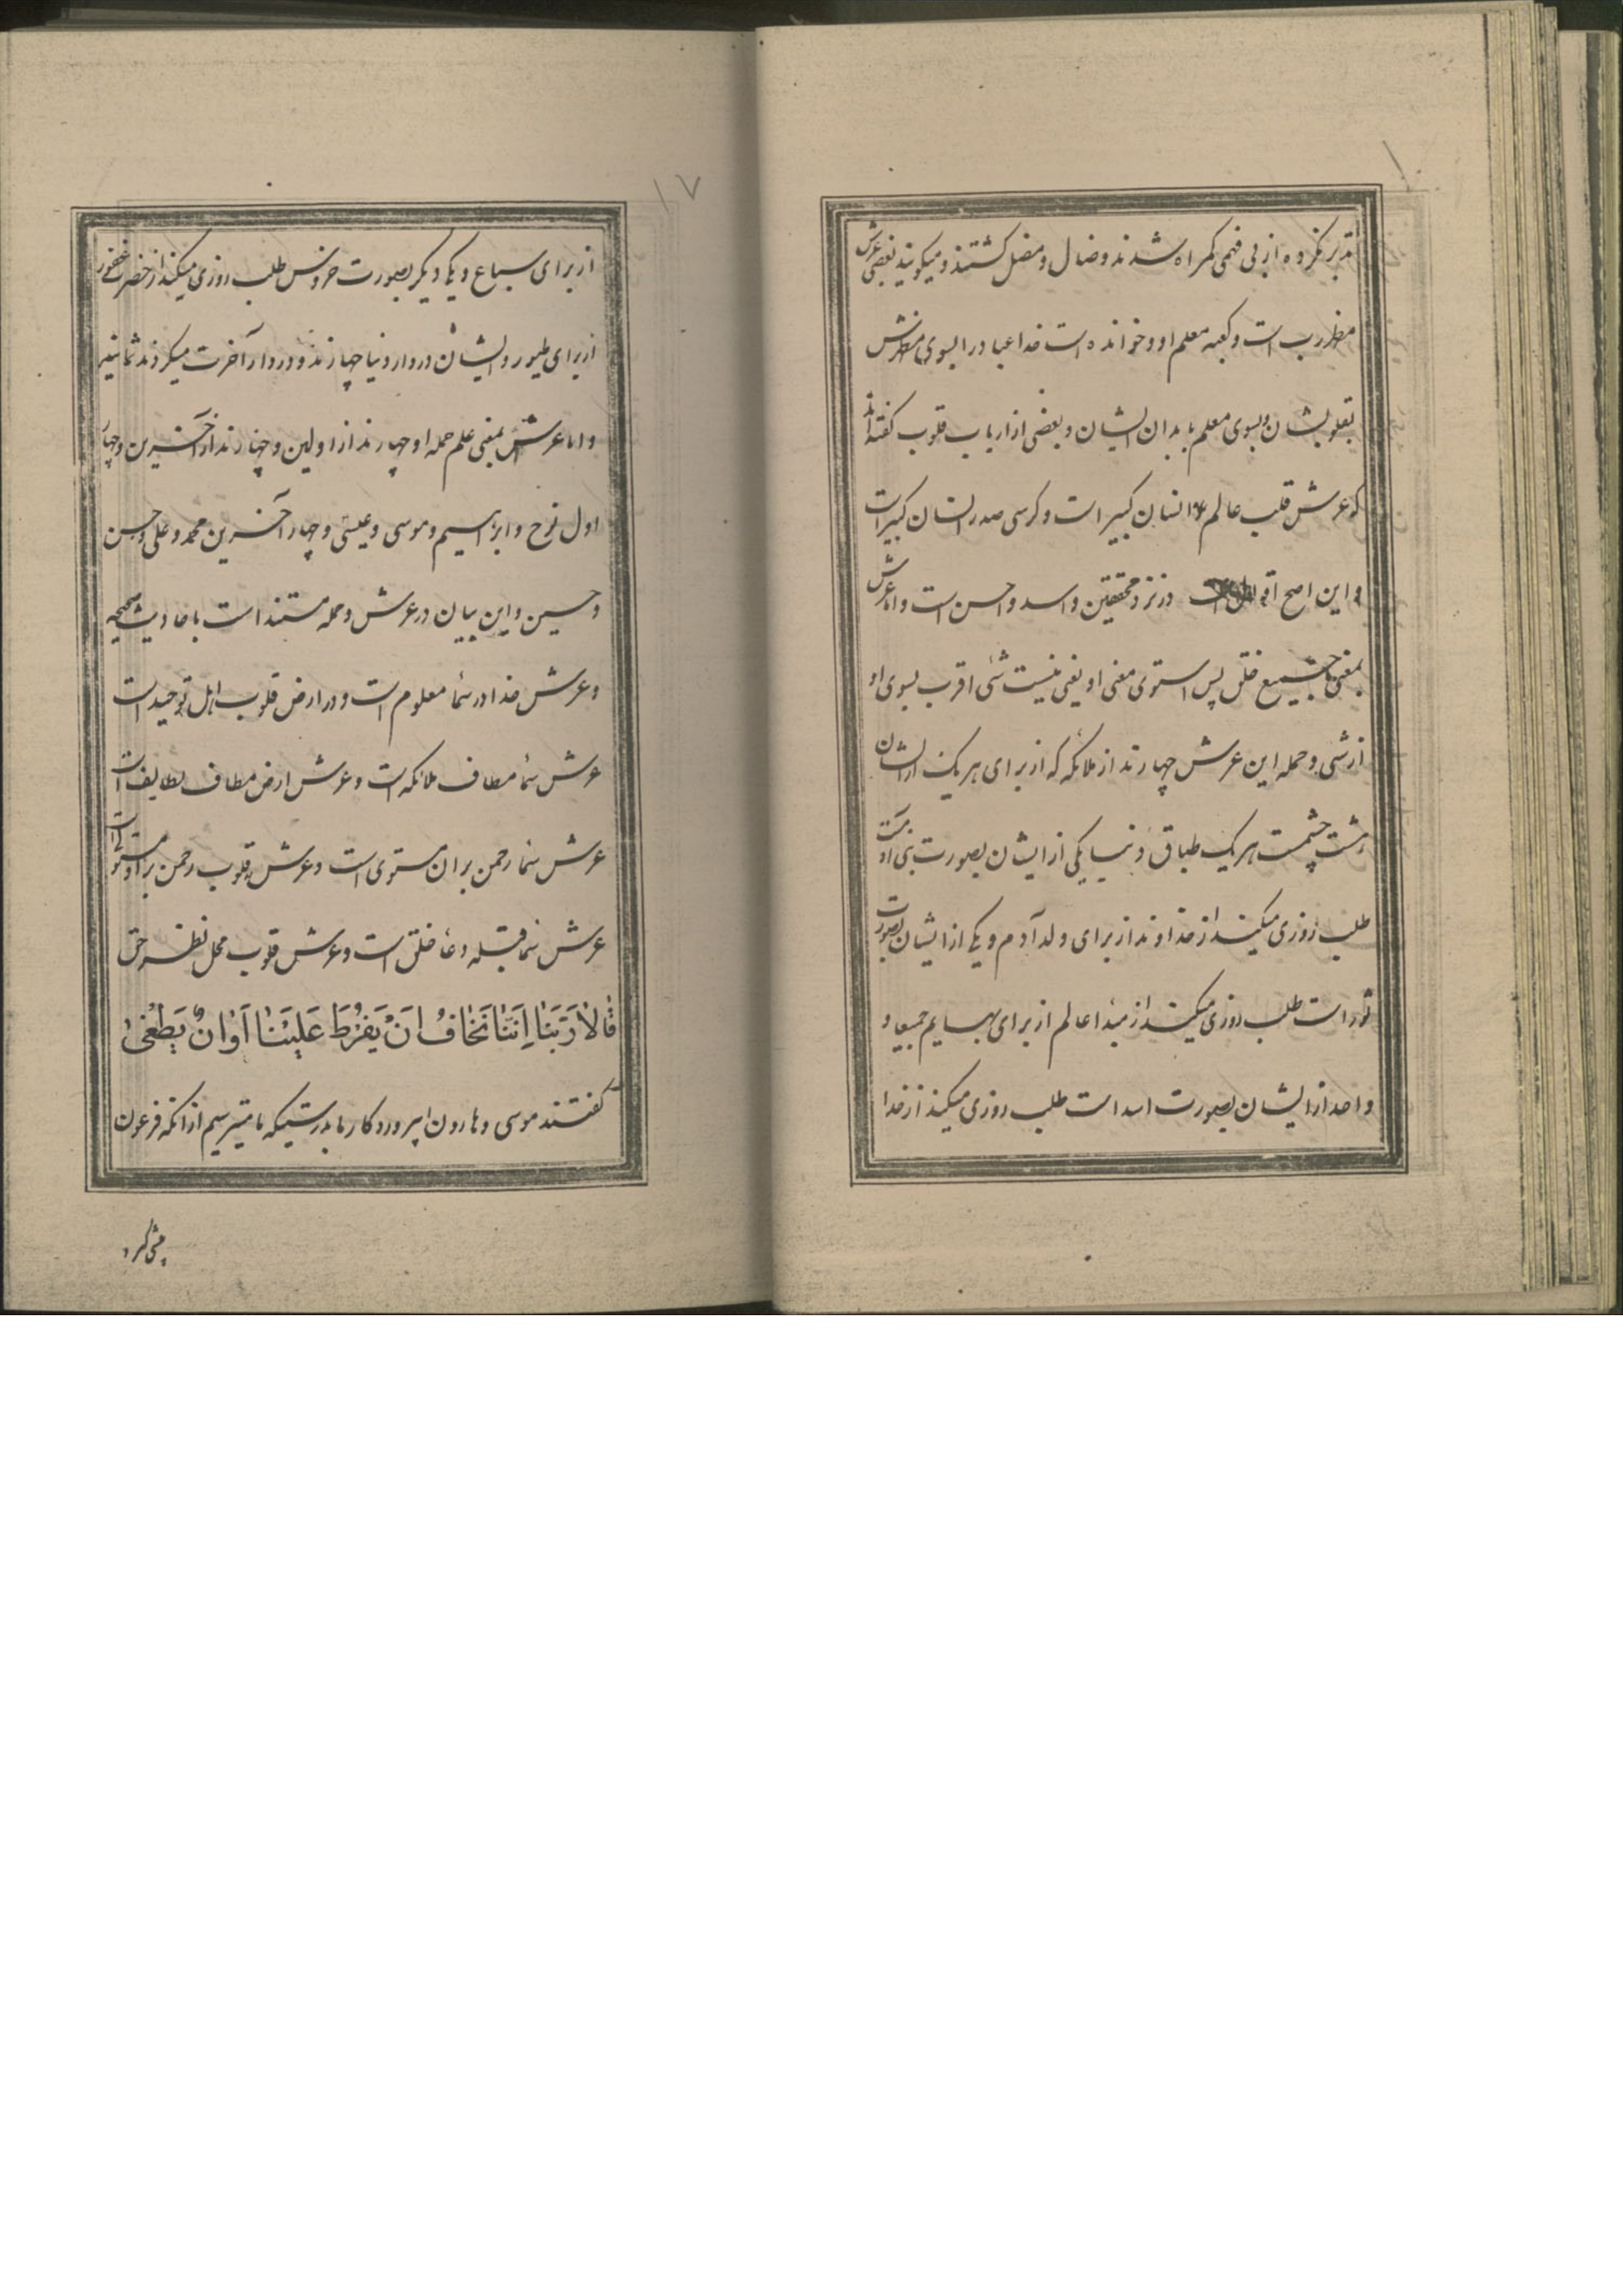 تدبر نکرده از بی فهمی کمراه شدند و ضال و مضل کشتند و میکویند بعضی عرش
مظهر رب است و کعبه معلم او و خوانده است خدا عباد را بسوی مظهرش
بقلوبشان و بسوی معلم بابدان ایشان و بعضی از ارباب قلوب کفته‌اند
که عرش قلب عالم انسان کبیر است و کرسی صدر انسان کبیر است
و این اصح اقوال در نزد محققین و اسد و احسن است و اما عرش
بمعنی جمیع خلق پس استوی معنی او یعنی نیست شی اقرب بسوی او
از شی و حمله این عرش چهارند از ملائکه که از برای هریک از ایشان
هشت چشمست هر یک طباق دنیا یکی از ایشان بصورت بنی آدمست
طلب روزی میکند از خداوند از برای ولد آدم و یکی از ایشان بصورت
ثور است طلب روزی میکند از مبدا عالم از برای بهایم جمیعا و
واحد از ایشان بصورت اسد است طلب روزی میکند از خدا
۱۷
از برای سباع و یکی دیکر بصورت خروس طلب روزی میکند از حضرت غفور
از برای طیور و ایشان در دار دنیا چهارند و در دار آخرت میکردند ثمانیه
و اما عرش بمعنی علم حمله او چهارند از اولین و چهارند از آخرین و چهار
اول نوح و ابراهیم و موسی و عیسی و چهار آخرین محمد و علی و حسن
و حسین و این بیان در عرش و حمله مستند است باحادیث صحیحه
و عرش خدا در سما معلوم است و در ارض قلوب اهل توحید است
عرش سما مطاف ملائکه است و عرش ارض مطاف لطایف است
عرش سما رحمن بران مستوی است و عرش قلوب رحمن بر او مستولی است
عرش سما قبله دعا خلق است و عرش قلوب محل نظر حق
قالا ربنا اننا نخاف ان یفرط علینا او ان یطغی
کفتند موسی و هارون ای پروردکار ما بدرستیکه ما میترسیم از انکه فرعون